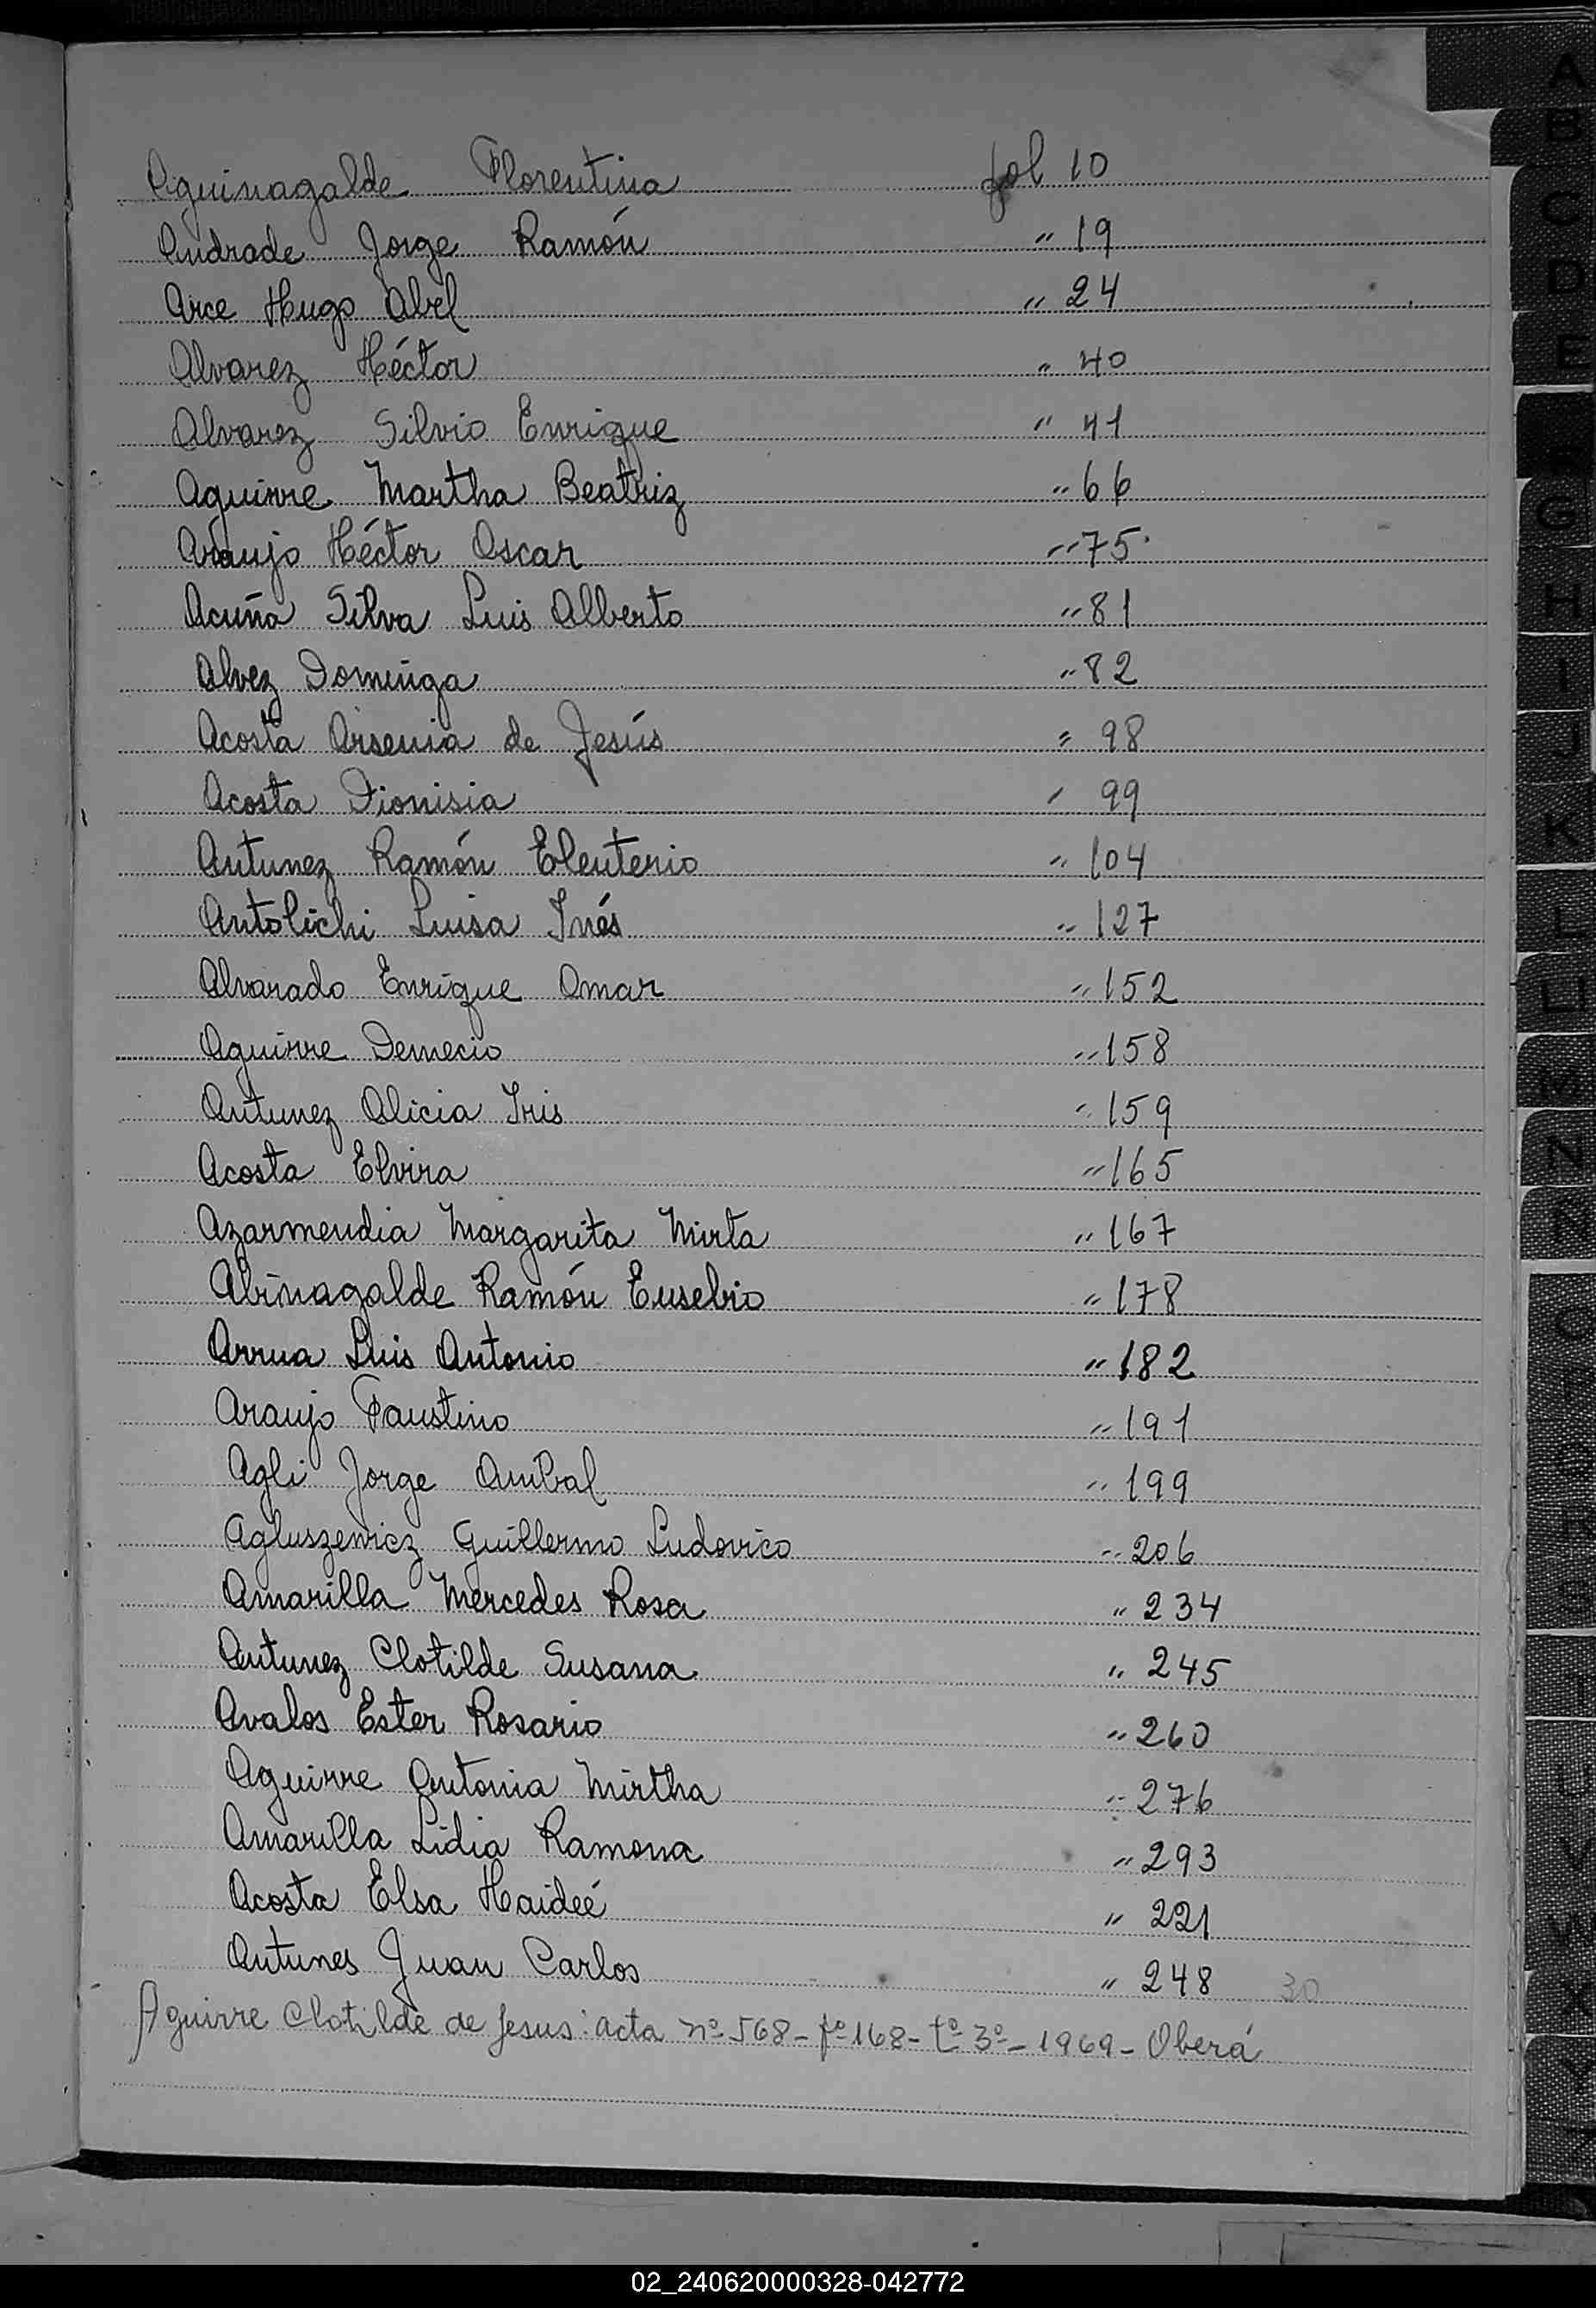 Aguinagalde Florentina fol 10
Andrade Jorge Ramón " 19
Arce Hugo Abel " 24
Alvarez Héctor " 40
Alvarez Silvio Enrique " 41
Aguirre Martha Beatriz " 66
Araujo Héctor Oscar " 75
Acuña Silva Luis Alberto " 81
Alvez Dominga " 82
Acosta Arsenia de Jesús " 98
Acosta Dionisia " 99
Antunez Ramón Eleuterio " 104
Antolichi Luisa Inés " 127
Alvarado Enrique Omar " 152
Aguirre Demecio " 158
Antunez Alicia Iris " 159
Acosta Elvira " 165
Azarmendia Margarita Mirta " 167
Abinagalde Ramón Eusebio " 178
Arrua Luis Antonio " 182
Araujo Faustino " 191
Agli Jorge Anibal " 199
Agluszewicz Guillermo Ludovico " 206
Amarilla Mercedes Rosa " 234
Antunez Clotilde Susana " 245
Avalos Ester Rosario " 260
Aguirre Antonia Mirtha " 276
Amarilla Lidia Ramona " 293
Acosta Elsa Haideé " 221
Antunes Juan Carlos " 248 30
Aguirre Clotilde de Jesus: acta nº 568 - fº 168 - tº 3º - 1969 - Oberá
A
B
C
D
E
F
G
H
I
J
K
L
LL
M
N
Ñ
O
P
Q
R
S
T
U
V
W
X
Y
02_240620000328-042772